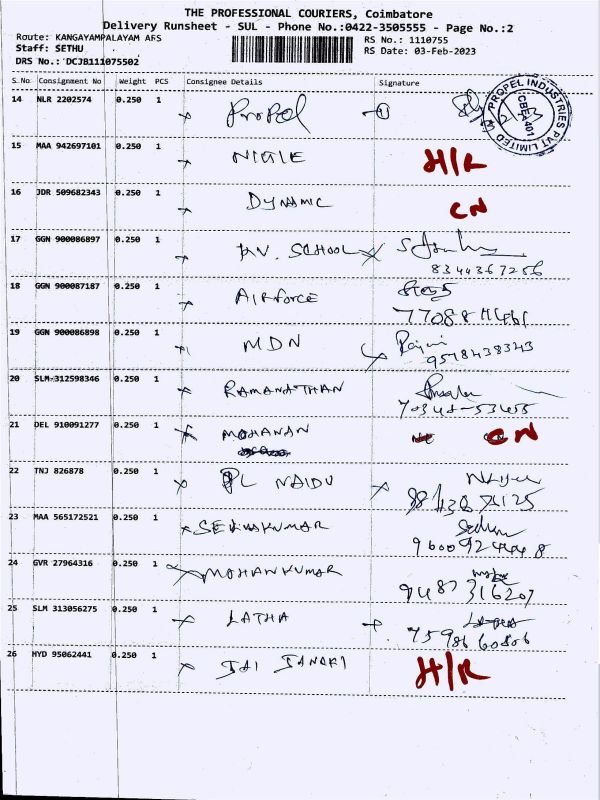 THE PROFESSIONAL COURIERS, Coimbatore
Delivery Runsheet - SUL - Phone No.:0422-3505555 - Page No.:2
Route: KANGAYAMPALAYAM AFS
RS No.: 1110755
Staff: SETHU
RS Date: 03-Feb-2023
DRS No.: DCJB111075502
S.No Consignment No Weight PCS Consignee Details Signature
14 NLR 2202574 0.250 1 Propel
PROPEL INDUSTRIES PVT LIMITED CBE-401
15 MAA 942697101 0.250 1 H/R
16 JDR 509682343 0.250 1 DYNAMIC CN
17 GGN 900086897 0.250 1 KV. SCHOOL
8344367256
18 GGN 900087187 0.250 1 AIRFORCE
19 GGN 900086898 0.250 1 MDN
9578438343
20 SLM-312598346 0.250 1 RAMANATHAN
70348-53455
21 DEL 910091277 0.250 1 MOHANAN CN
22 TNJ 826878 0.250 1 PL NAIDU
23 MAA 565172521 0.250 1 SELVAKUMAR
24 GVR 27964316 0.250 1 MOHANKUMAR
9487316207
25 SLM 313056275 0.250 1 LATHA
7598660806
26 HYD 95062441 0.250 1 JAI JANAKI H/R